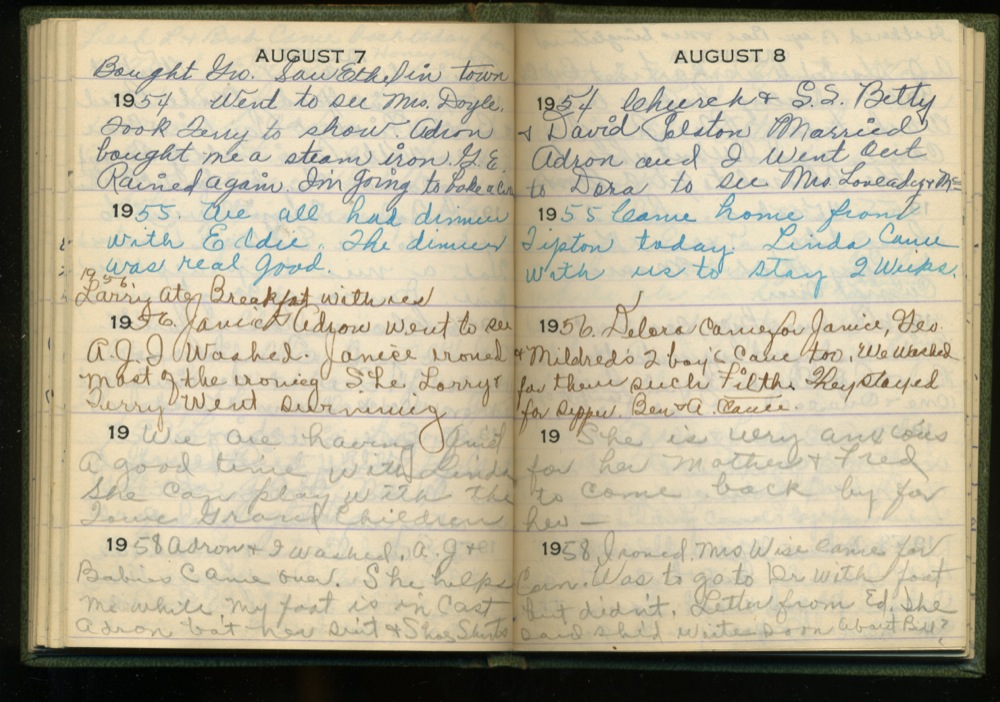 AUGUST 7
Bought Gro. Saw Ethel in town
1954 Went to see Mrs. Doyle.
Took Terry to show. Adron
bought me a steam iron. G.E.
Rained again. I'm going to bake a
1955. We all had dinner
with Eddie. The dinner
was real good.
1956
Larry ate Breakfat with us
1956. Janice & Adron went to see
A.J. I Washed. Janice ironed
most of the ironing She, Larry &
Terry Went swimming
19 We are having
A good time with Linda
She can play with the
Town Grand Children
1958 Adron & I washed. A.J. &
Babies Came over. She helps
me while my foot is in Cast
Adron bo't her & Shoes
AUGUST 8
1954 Church & S.S. Betty
& David Elston Married
Adron and I Went out
to Dora to see Mrs Loveady &
1955 Came home from
Tipton today. Linda Came
with us to stay 2 Weeks.
1956. Delora came for Janice, Geo.
& Mildred's 2 boy's Came too. We Washed
for them such Filth. They stayed
for supper. Ben & A. Came.
19 She is very anxious
for her Mother & Fred
to come back by for
her —
1958 Ironed. Mrs Wise Came for
Corn. Was to go to Dr with foot
but didn't. Letter from Ed. She
said she'd write soon About Bill?